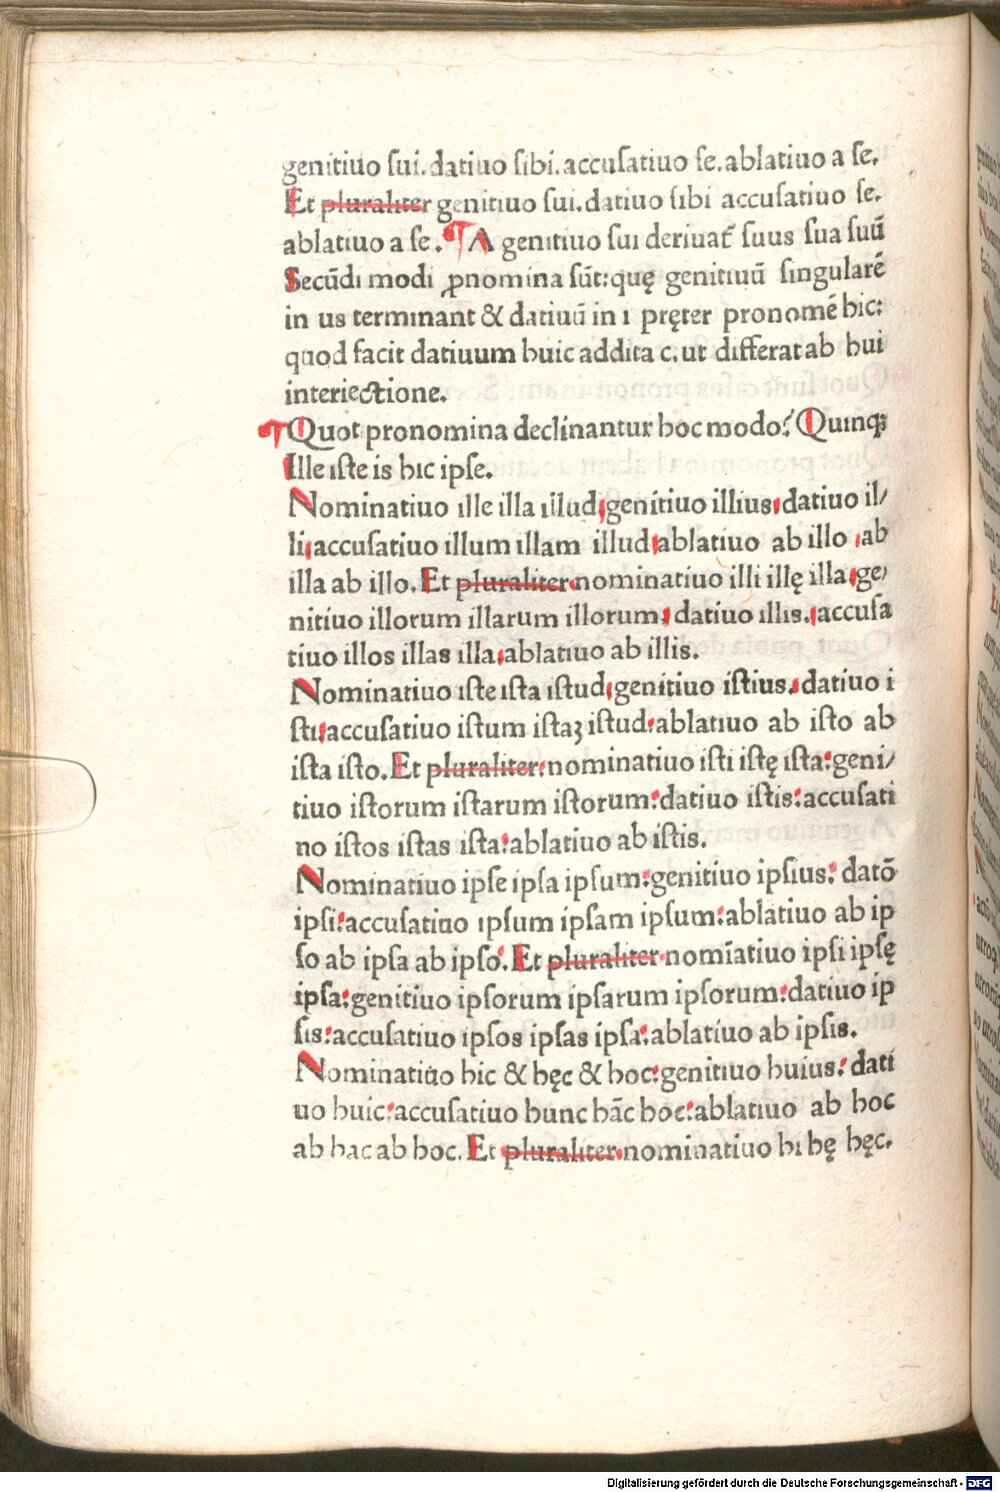 genitiuo ſui.datiuo ſibi.accuſatiuo ſe.ablatiuo a ſe.
Et pluraliter genitiuo ſui.datiuo ſibi accuſatiuo ſe.
ablatiuo a ſe. ¶ A genitiuo ſui deriuat᷑ ſuus ſua ſuū
Secūdi modi ꝓnomina ſūt:quę genitiuū ſingularē
in us terminant & datiuū in i pręter pronomē hic:
quod facit datiuum huic addita c.ut differat ab hui
interiectione.
¶ Quot pronomina declinantur hoc modo? Quinqꝫ
Ille iſte is hic ipſe.
Nominatiuo ille illa illud,genitiuo illius,datiuo il/
li,accuſatiuo illum illam illud,ablatiuo ab illo ,ab
illa ab illo. Et pluraliter,nominatiuo illi illę illa,ge/
nitiuo illorum illarum illorum, datiuo illis.,accuſa
tiuo illos illas illa,ablatiuo ab illis.
Nominatiuo iſte iſta iſtud,genitiuo iſtius.,datiuo i
ſti,accuſatiuo iſtum iſtaꝫ iſtud:ablatiuo ab iſto ab
iſta iſto. Et pluraliter:nominatiuo iſti iſtę iſta:geni/
tiuo iſtorum iſtarum iſtorum:datiuo iſtis:accuſati
no iſtos iſtas iſta:ablatiuo ab iſtis.
Nominatiuo ipſe ipſa ipſum:genitiuo ipſius: datō
ipſi:accuſatiuo ipſum ipſam ipſum:ablatiuo ab ip
ſo ab ipſa ab ipſo. Et pluraliter nomīatiuo ipſi ipſę
ipſa:genitiuo ipſorum ipſarum ipſorum:datiuo ip
ſis:accuſatiuo ipſos ipſas ipſa:ablatiuo ab ipſis.
Nominatiuo hic & hęc & hoc:genitiuo huius: dati
uo huic:accuſatiuo hunc hāc hoc:ablatiuo ab hoc
ab hac ab hoc. Et pluraliter,nominatiuo hi hę hęc.
Digitalisierung gefördert durch die Deutsche Forschungsgemeinschaft - DFG